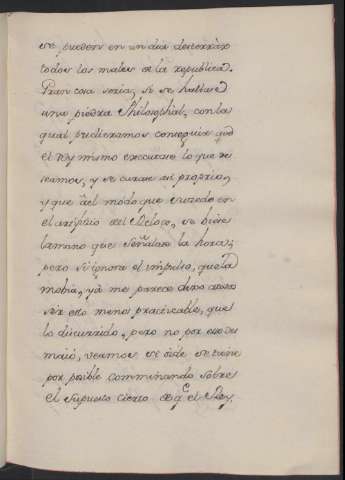 se pueden en un dia desterràr
todos los males de la republica.
Gran cosa seria, si se hallase
una piedra Philosophal, con la
qual pudieramos conseguir qũe
el Rey mismo executase lo que de
seamos, y se curase asi proprio,
y que àel modo que sucede en
el artificio del Relox, se viese
la mano que Señalase la hora;
pero Siignora el impulso, que la
mobia, yà me parece dixo
ser esto menos practicable, que
lo discurrido, pero no por eso des
maió, veamos se dide se tiene
por posible comminando sobre
el Supuesto cierto de q.ᵉ el Rey,